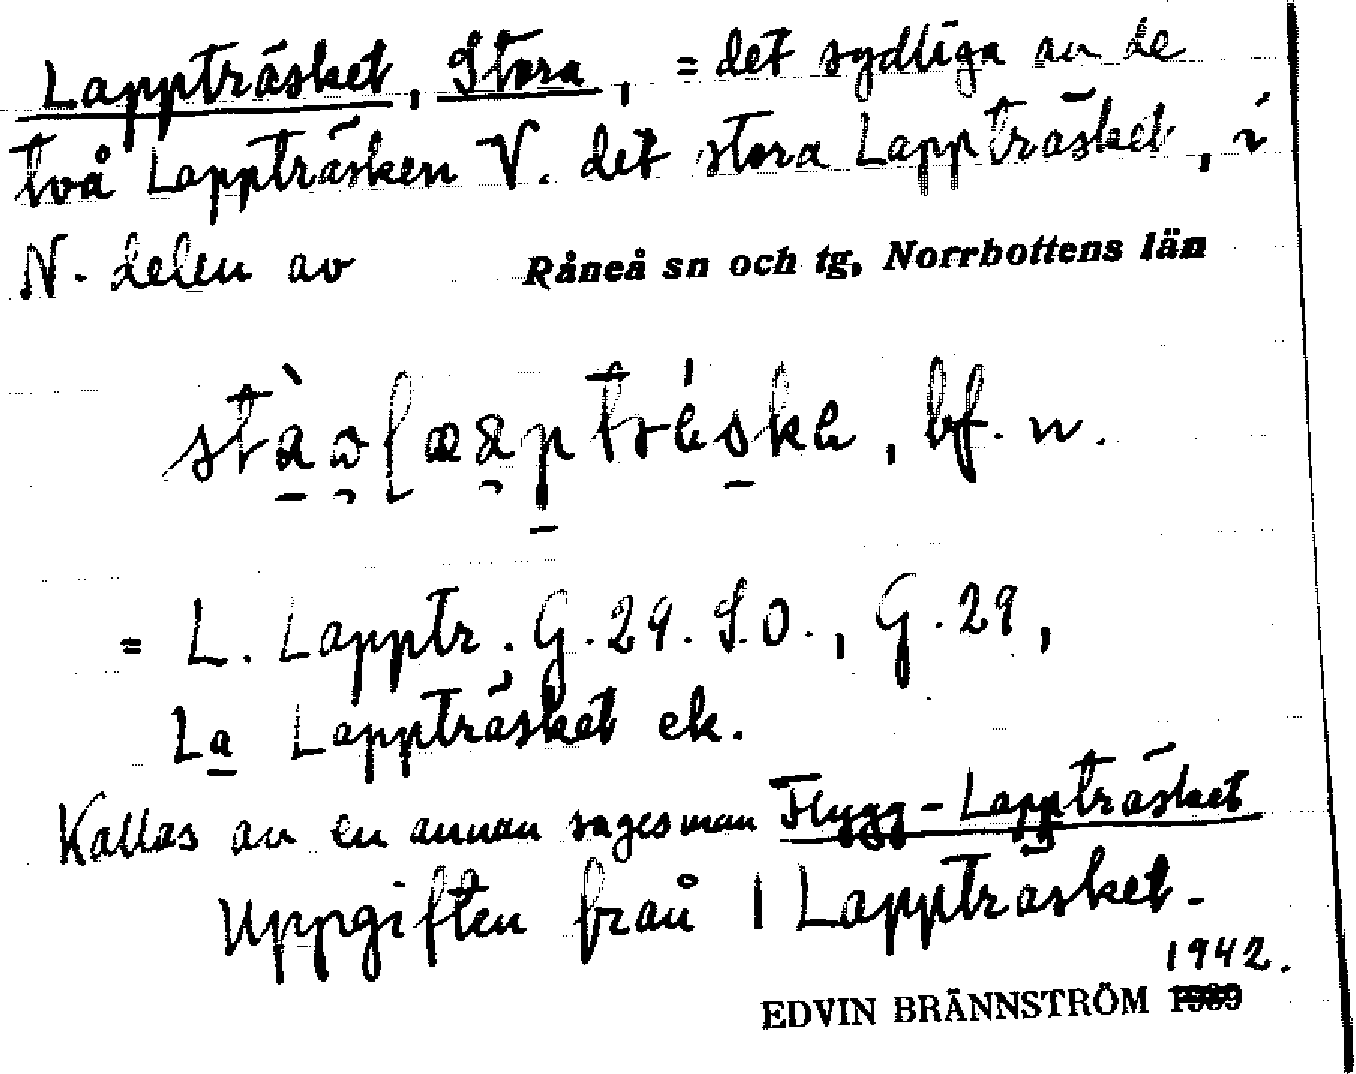 Lappträsket, Stora, = det sydliga av de
två Lappträsken V. det stora Lappträsket, i
N. delen av Råneå sn och tg, Norrbottens län
bf. n.
= L. Lapptr. G. 29. S.O., G. 29,
La Lappträsket ek.
Kallas av en annan sagesman Flygg-Lappträsket
Uppgiften från 1 Lappträsket.
1942.
EDVIN BRÄNNSTRÖM 1939